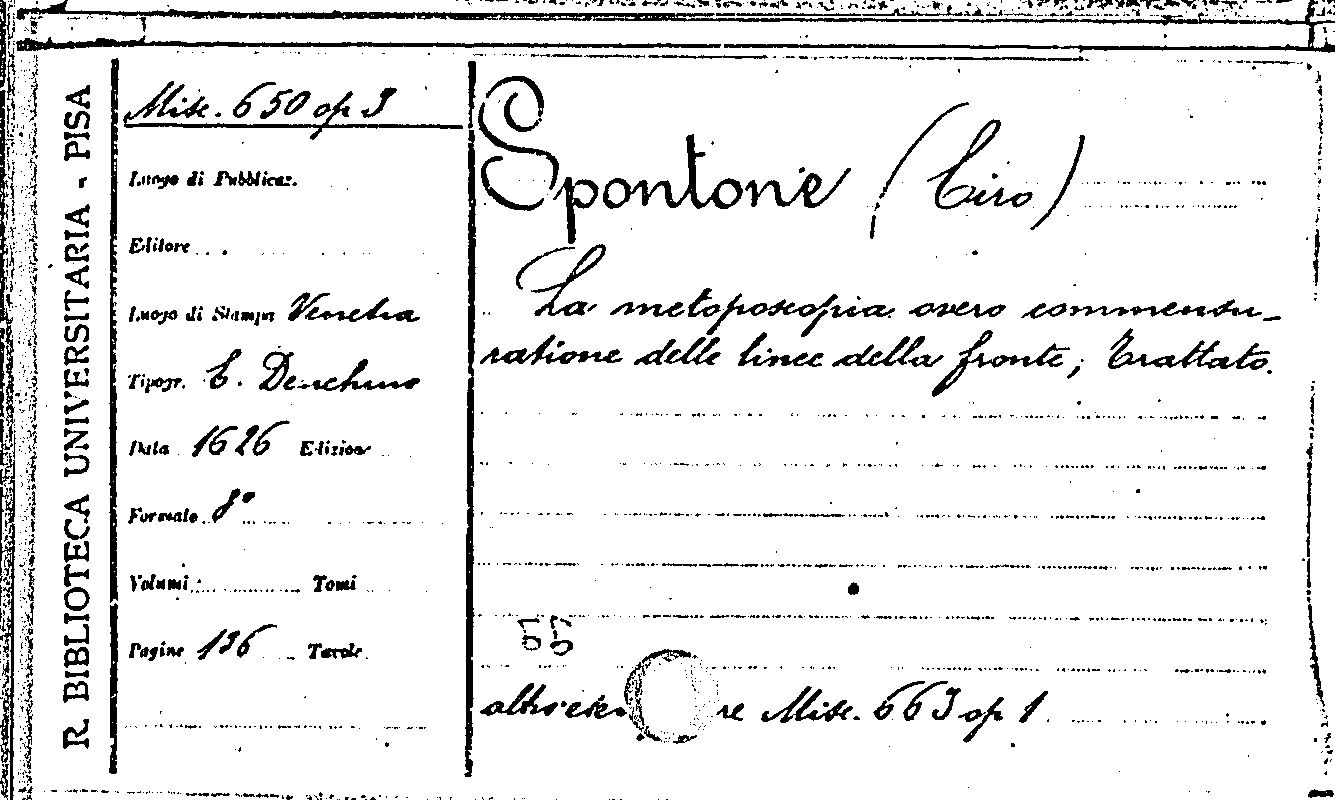 R. BIBLIOTECA UNIVERSITARIA - PISA
Misc. 650 op 3
Luogo di Pubblicaz.
Editore
Luogo di Stampa Venetia
Tipogr. E. Deuchino
Data 1626 Edizione
Formato 8°
Volumi Tomi
Pagine 136 Tavole
Spontone (Ciro)
La metoposcopia overo commensu-
ratione delle linee della fronte; Trattato.
altro re Misc. 663 op 1